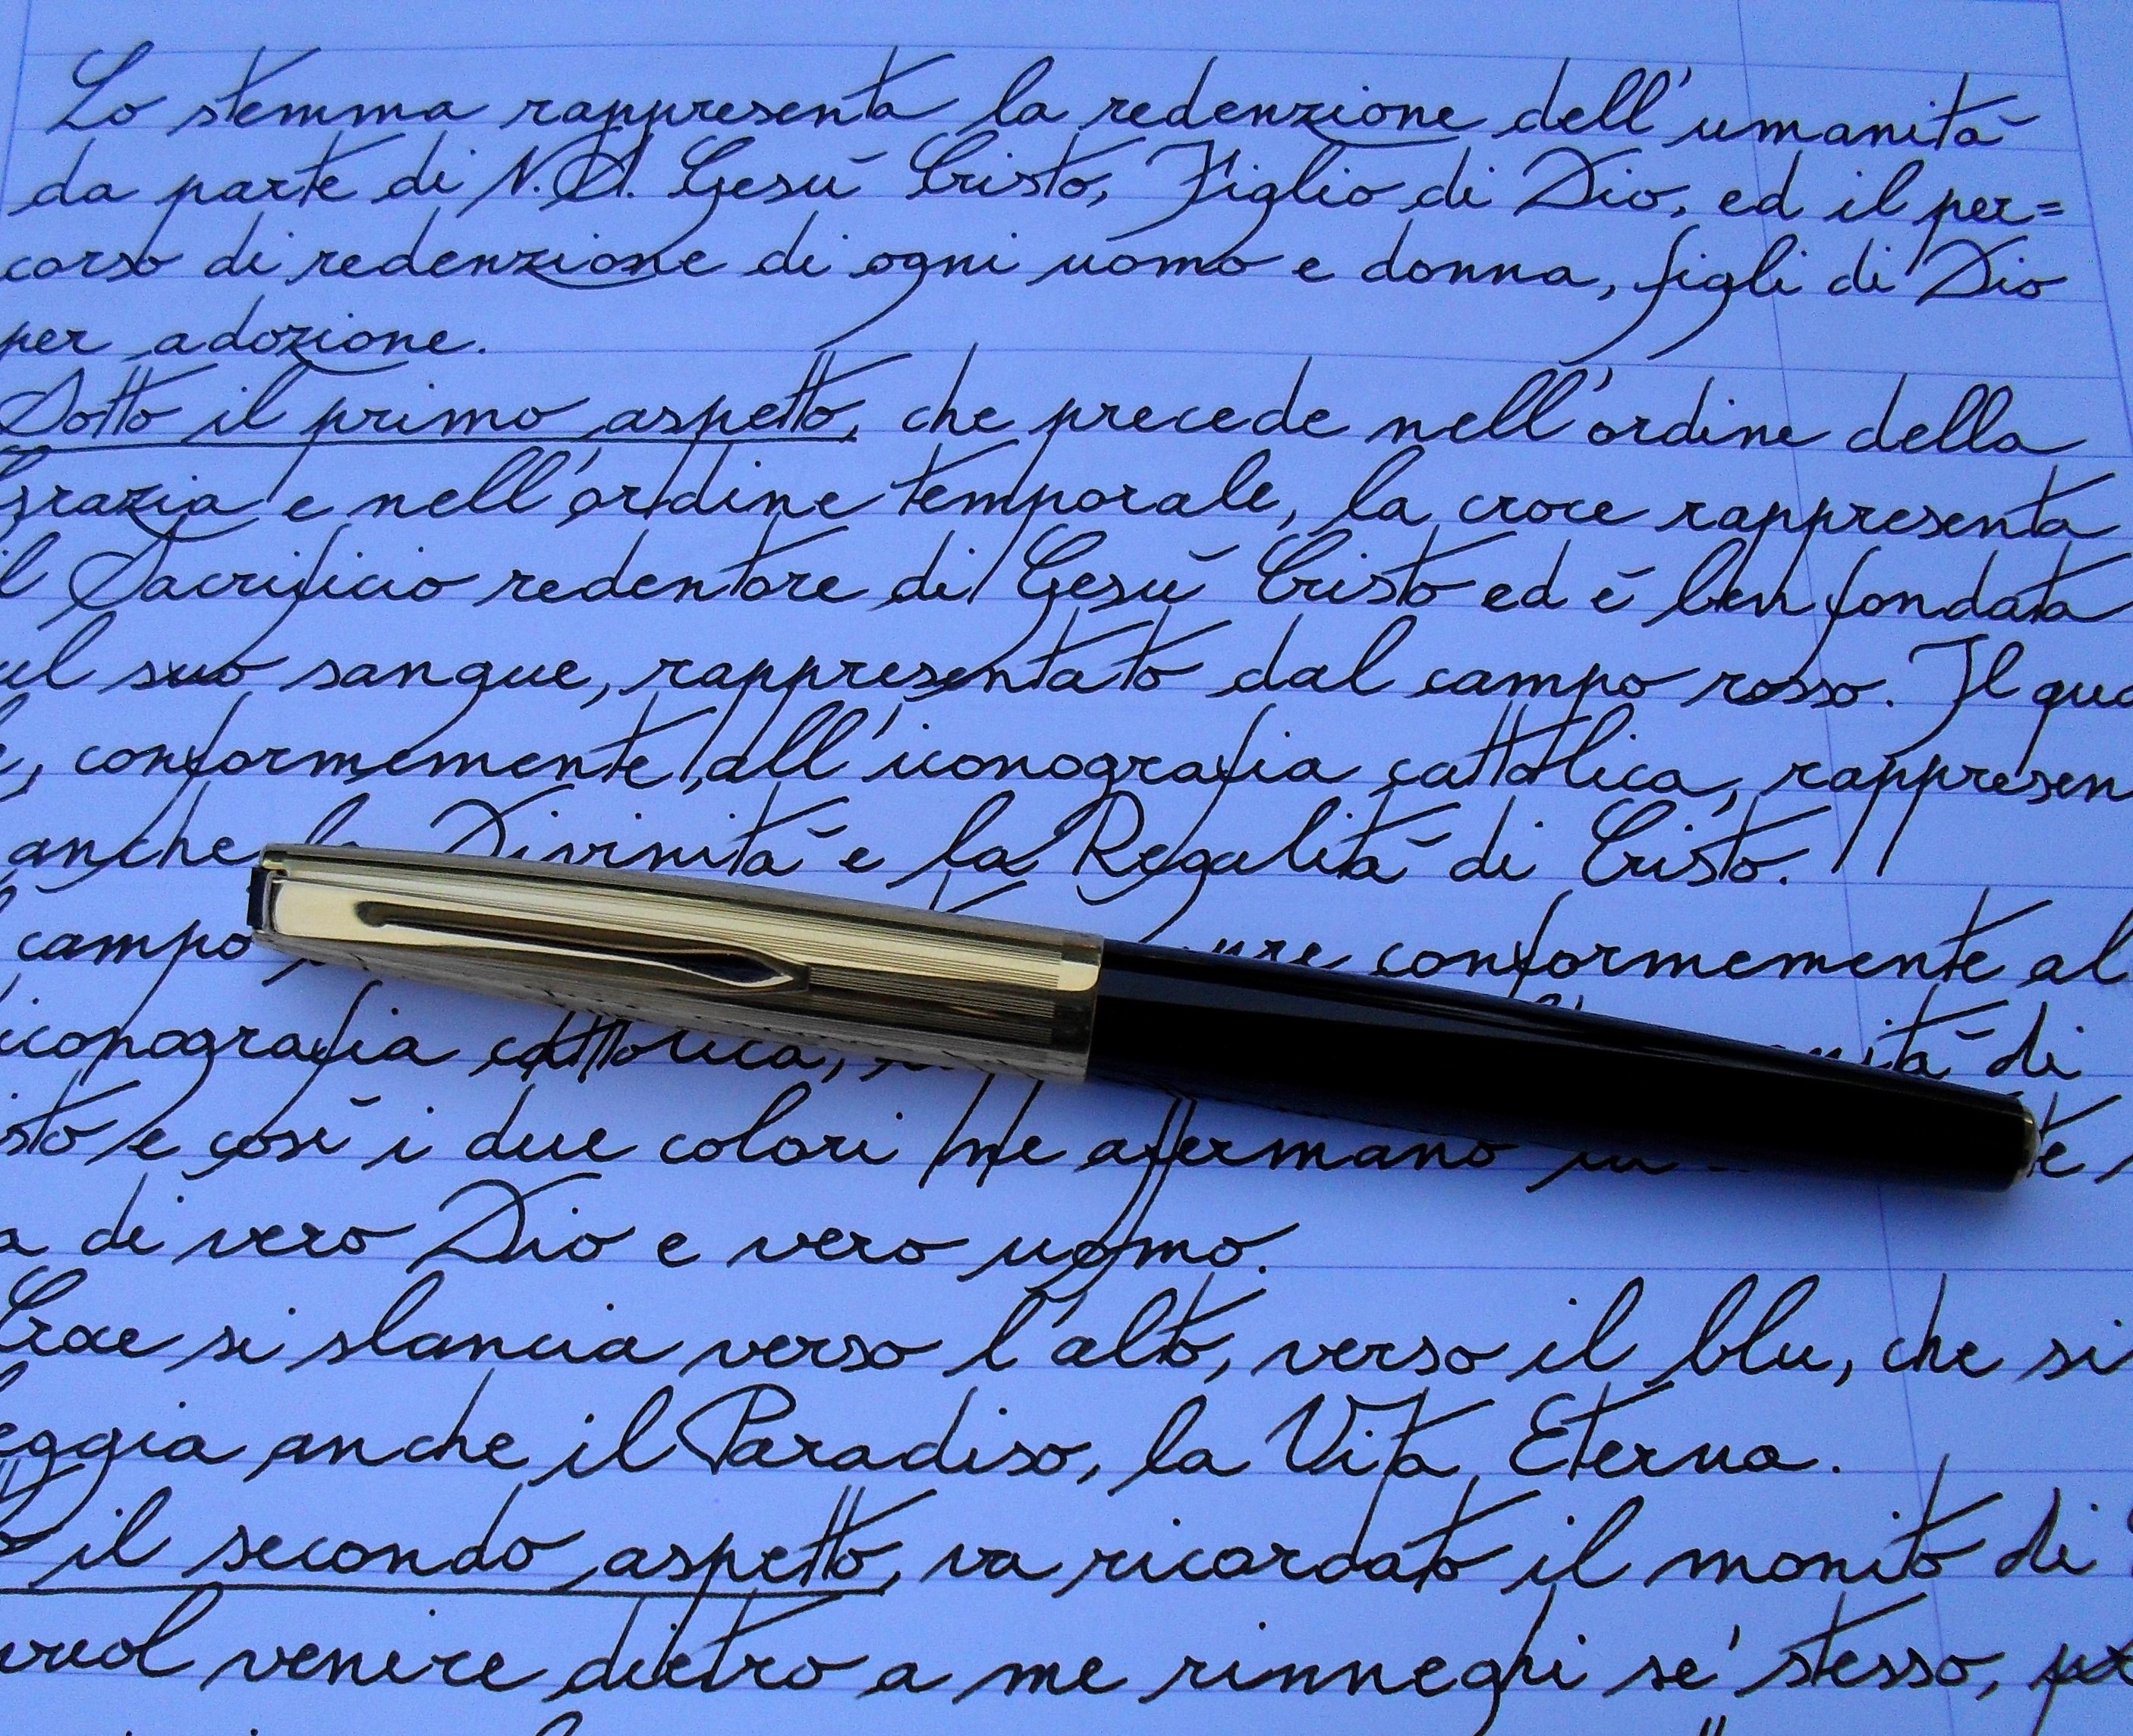 Lo stemma rappresenta la redenzione dell'umanità
da parte di N.S. Gesù Cristo, Figlio di Dio, ed il per=
corso di redenzione di ogni uomo e donna, figli di Dio
per adozione.
Sotto il primo aspetto, che precede nell'ordine della
Grazia e nell'ordine temporale, la croce rappresenta
il Sacrificio redentore di Gesù Cristo ed è ben fondata
sul suo sangue, rappresentato dal campo rosso. Il qua
e, conformemente all'iconografia cattolica, rappresen
anche la Divinità e la Regalità di Cristo.
campo conformemente al
iconografia cattolica, di
sto e così i due colori ne affermano
a di vero Dio e vero uomo.
Croce si slancia verso l'alto, verso il blu, che si
eggia anche il Paradiso, la Vita Eterna.
il secondo aspetto, va ricordato il monito di
vuol venire dietro a me rinneghi se' stesso,